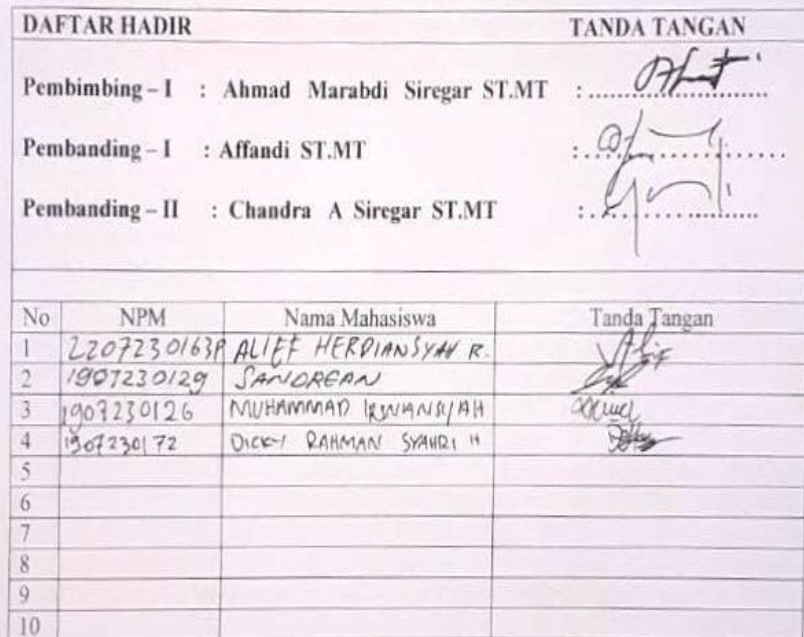 DAFTAR HADIR TANDA TANGAN
Pembimbing – I : Ahmad Marabdi Siregar ST.MT :
Pembanding – I : Affandi ST.MT :
Pembanding – II : Chandra A Siregar ST.MT :
No NPM Nama Mahasiswa Tanda Tangan
1 2207230163P ALIEF HERDIANSYAH R.
2 1907230129 SANDREAN
3 1907230126 MUHAMMAD IRWANSYAH
4 1907230172 DICKY RAHMAN SYAHRI H
5
6
7
8
9
10